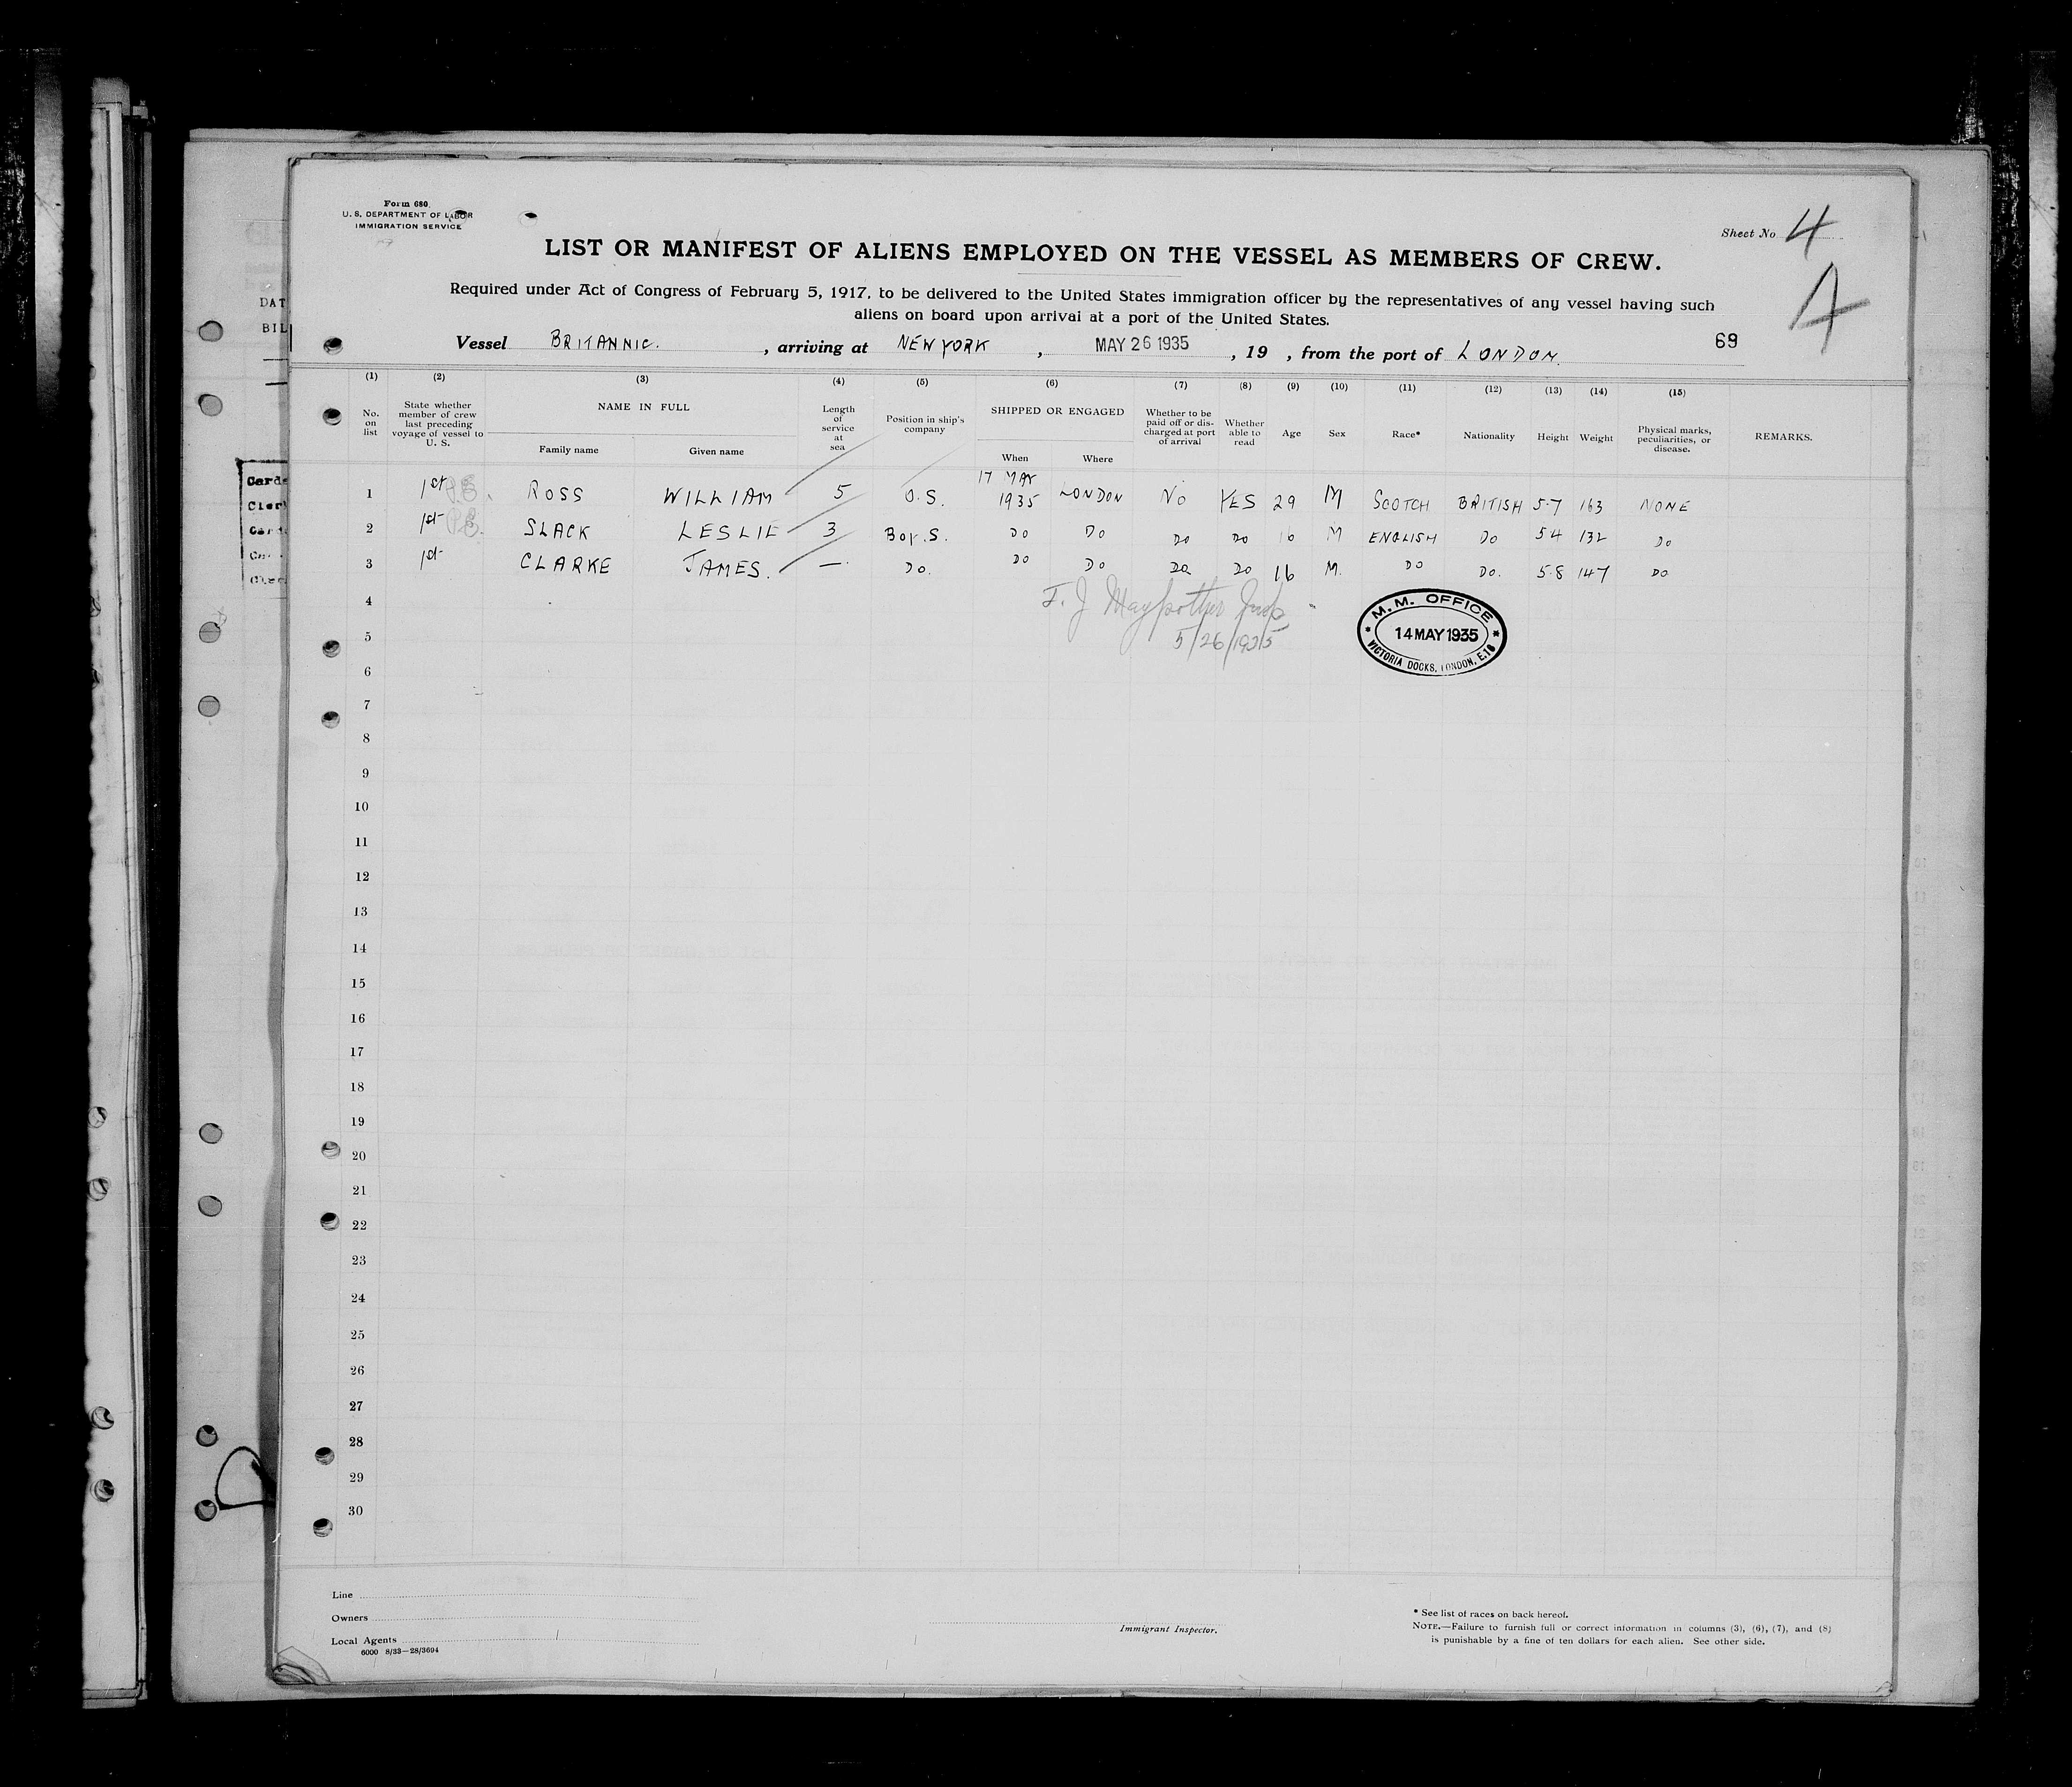 Form 680
U. S. DEPARTMENT OF LABOR
IMMIGRATION SERVICE
Sheet No 4
A
LIST OR MANIFEST OF ALIENS EMPLOYED ON THE VESSEL AS MEMBERS OF CREW.
Required under Act of Congress of February 5, 1917, to be delivered to the United States immigration officer by the representatives of any vessel having such
aliens on board upon arrival at a port of the United States.
69
Vessel BRITANNIC. , arriving at NEW YORK , MAY 26 1935 , 19 , from the port of LONDON
DAT
BIL
(1) (2) (3) (4) (5) (6) (7) (8) (9) (10) (11) (12) (13) (14) (15)
No. on list
State whether member of crew last preceding voyage of vessel to U. S.
NAME IN FULL
Family name Given name
Length of service at sea
Position in ship's company
SHIPPED OR ENGAGED
When Where
Whether to be paid off or discharged at port of arrival
Whether able to read
Age Sex Race* Nationality Height Weight
Physical marks, peculiarities, or disease.
REMARKS.
17 MAY
1 1st ROSS WILLIAM 5 O.S. 1935 LONDON NO YES 29 M SCOTCH BRITISH 5-7 163 NONE
2 1st SLACK LESLIE 3 Boy.S. DO DO DO DO 16 M ENGLISH DO 54 132 DO
3 1st CLARKE JAMES. —. DO. DO DO DO DO 16 M. DO DO. 5-8 147 DO
4
5
5/26/1935
M. M. OFFICE
14 MAY 1935
VICTORIA DOCKS, LONDON, E.16
6
7
8
9
10
11
12
13
14
15
16
17
18
19
20
21
22
23
24
25
26
27
28
29
30
Line
Owners
Local Agents
6000 8/33—28/3694
Immigrant Inspector.
* See list of races on back hereof.
NOTE.—Failure to furnish full or correct information in columns (3), (6), (7), and (8)
is punishable by a fine of ten dollars for each alien. See other side.